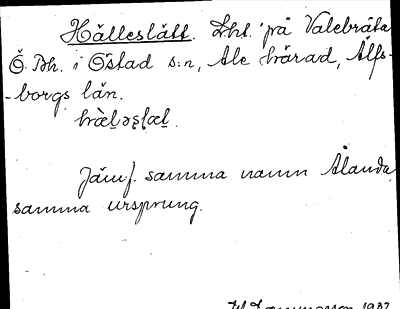 Hälleslätt. Lht. på Valebråta
Ö. Bh. i Östad s:n, Ale härad, Älfs-
-borgs län.
hæ̀l̲əʂl̲æt̲.
Jämf. samma namn Ålanda
samma ursprung.
1937